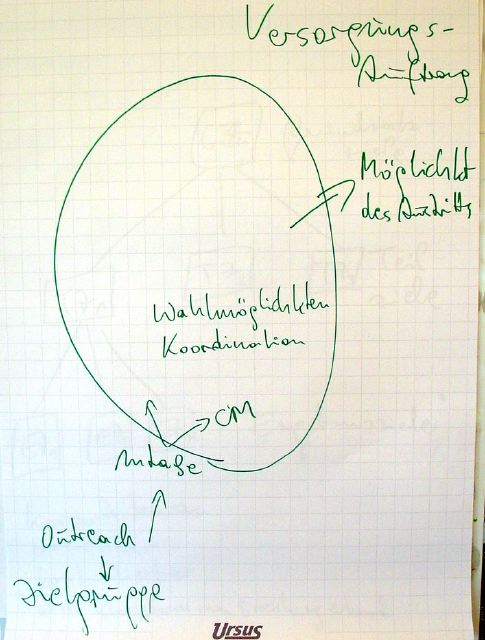 Versorgungs-
Auftrag
Möglichkt
des Austritts
Wahlmöglichkten
Koordination
CM
Intake
Outreach
Zielgruppe
Ursus